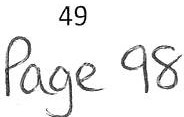 49
Page 98